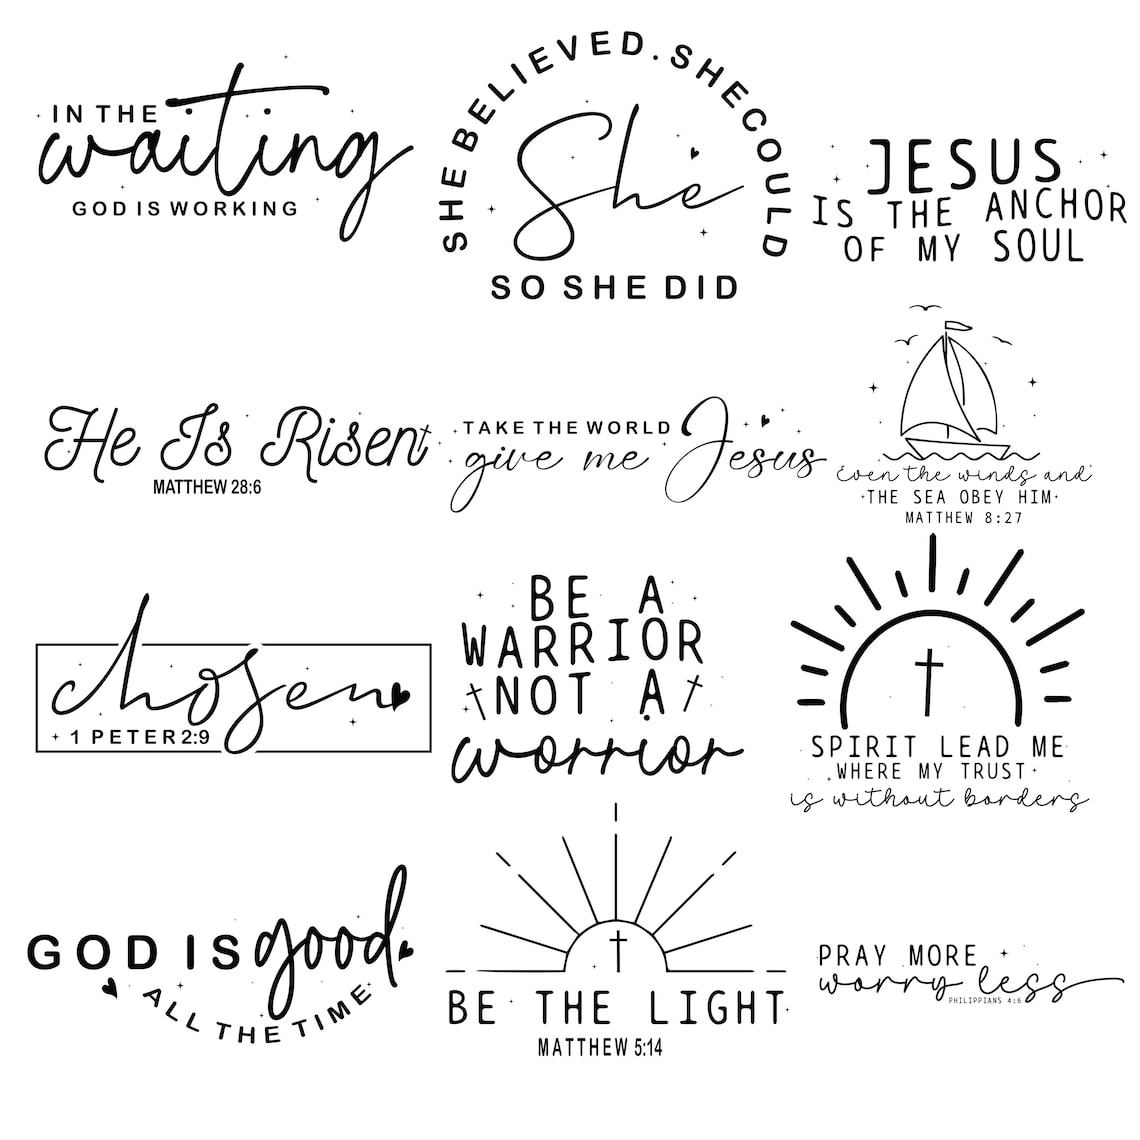 IN THE
waiting
GOD IS WORKING
SHE BELIEVED. SHE COULD
She
SO SHE DID
JESUS
IS THE ANCHOR
OF MY SOUL
He Is Risen
MATTHEW 28:6
TAKE THE WORLD
give me Jesus
Even the winds and
THE SEA OBEY HIM
MATTHEW 8:27
chosen
1 PETER 2:9
BE A
WARRIOR
NOT A
worrior
SPIRIT LEAD ME
WHERE MY TRUST
is without borders
GOD IS good
ALL THE TIME
BE THE LIGHT
MATTHEW 5:14
PRAY MORE
worry less
PHILIPPIANS 4:6